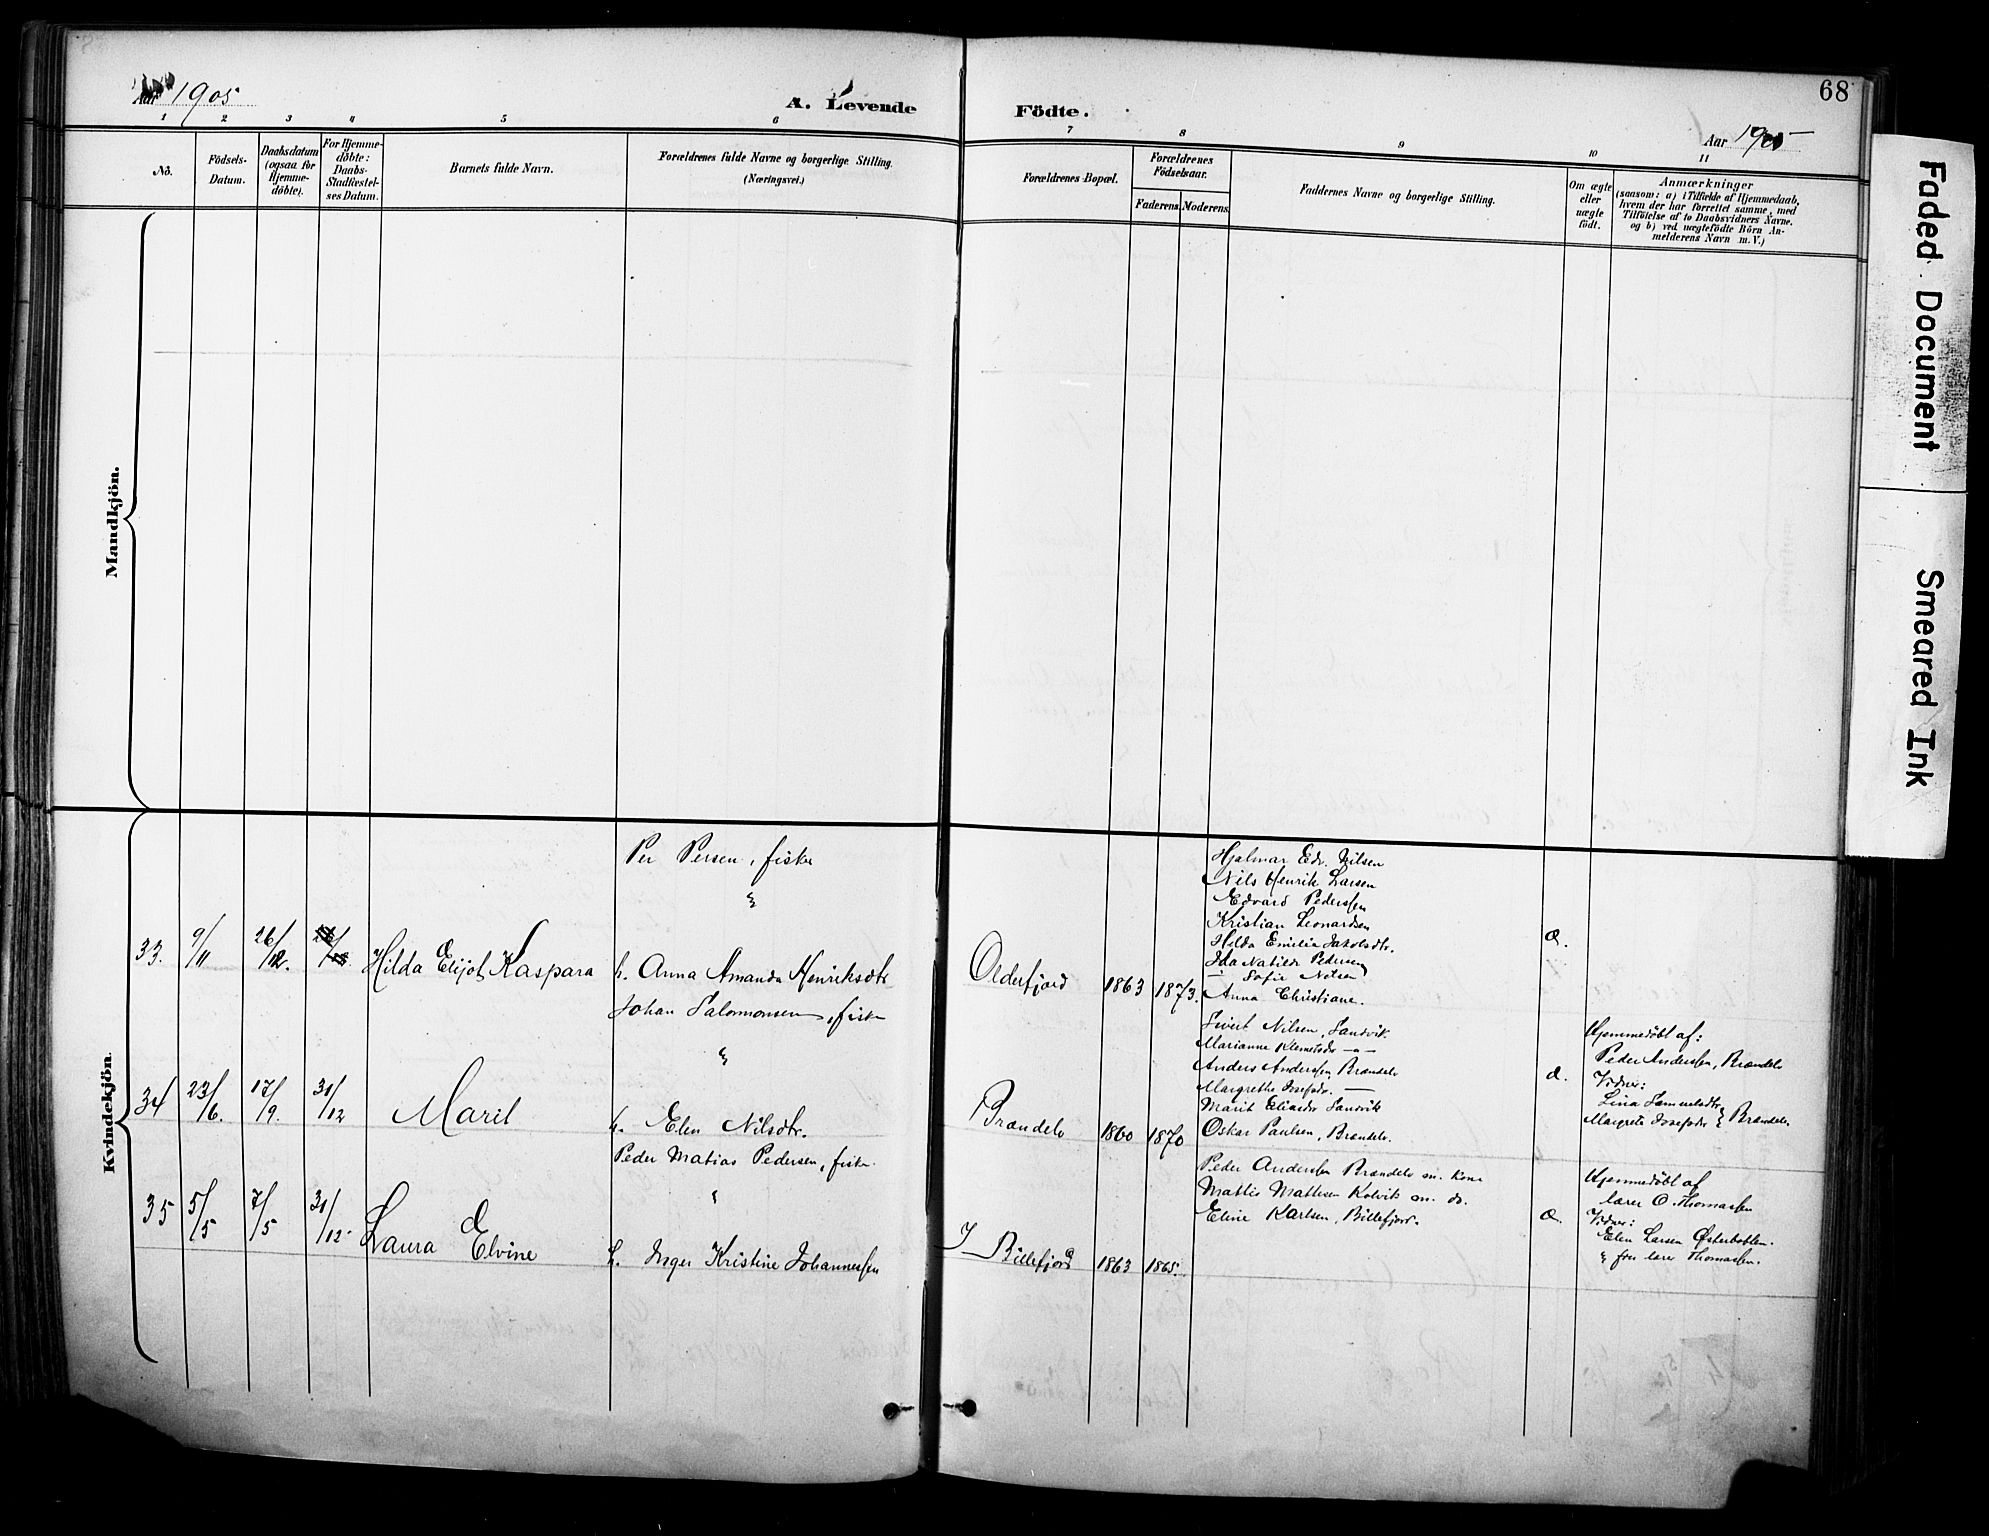 68
Aar 1905
A. Levende Födte.
Aar 1905
1 2 3 4 5 6 7 8 9 10 11
No.
Födsels-Datum.
Daabsdatum (ogsaa for Hjemme-döbte).
For Hjemme-döbte: Daabs-Stadfæstel-ses Datum.
Barnets fulde Navn.
Forældrenes fulde Navne og borgerlige Stilling. (Næringsvei.)
Forældrenes Bopæl.
Forældrenes Födselsaar.
Faderens. Moderens.
Faddernes Navne og borgerlige Stilling.
Om ægte eller uægte födt.
Anmærkninger
(saasom: a) i Tilfælde af Hjemmedaab,
hvem der har forrettet samme, med
Tilföielse af to Daabsvidners Navne.
og b) ved uægtefödte Börn An-
melderens Navn m. V.)
Mandkjön.
Kvindekjön.
33. 9/11 26/12. Hilda Elijot Kaspara
Per Persen, fisker
h. Anna Amanda Henriksdtr
Olderfjord 1863 1873.
Hjalmar Edv. Nilsen
Nils Henrik Larsen
Edvard Pederssen
Kristian Leonardsen
Hilda Emilie Jakobsdtr.
Ida Matilde Pedersen
— Sofie Nilsen
Anna Christiane.
Æ.
34 23/6. 17/9. 31/12 Marit
Johan Salomonsen, fisker
h. Elen Nilsdtr.
Brændelv 1860 1870
Sivert Nilsen, Sandvik
Marianne Klemetsdr —"—
Anders Anderssen Brændelv
Margrethe Josefsdr. —
Marit Eliasdr Sandvik
Oskar Paulsen, Brændelv.
Æ.
Hjemmedöbt af:
Peder Anderssen, Brændelv
Vidner:
Lina Samuelsdtr
Margrete Josefsdr } Brændelv
35 5/5 7/5 31/12 Laura Elvine
Peder Matias Pedersen, fisker.
h. Inger Kristine Johannessen
I Billefjord 1863 1865.
Peder Anderssen Brændelv m. kone
Mattis Mathisen Kolvik m. do.
Eline Karlsen, Billefjord.
Æ.
Hjemmedöbt af
lærer O. Thomassen
Vidner:
Elen Larsen Østerbotten.
" fru lærer Thomassen.
Faded Document
Smeared Ink